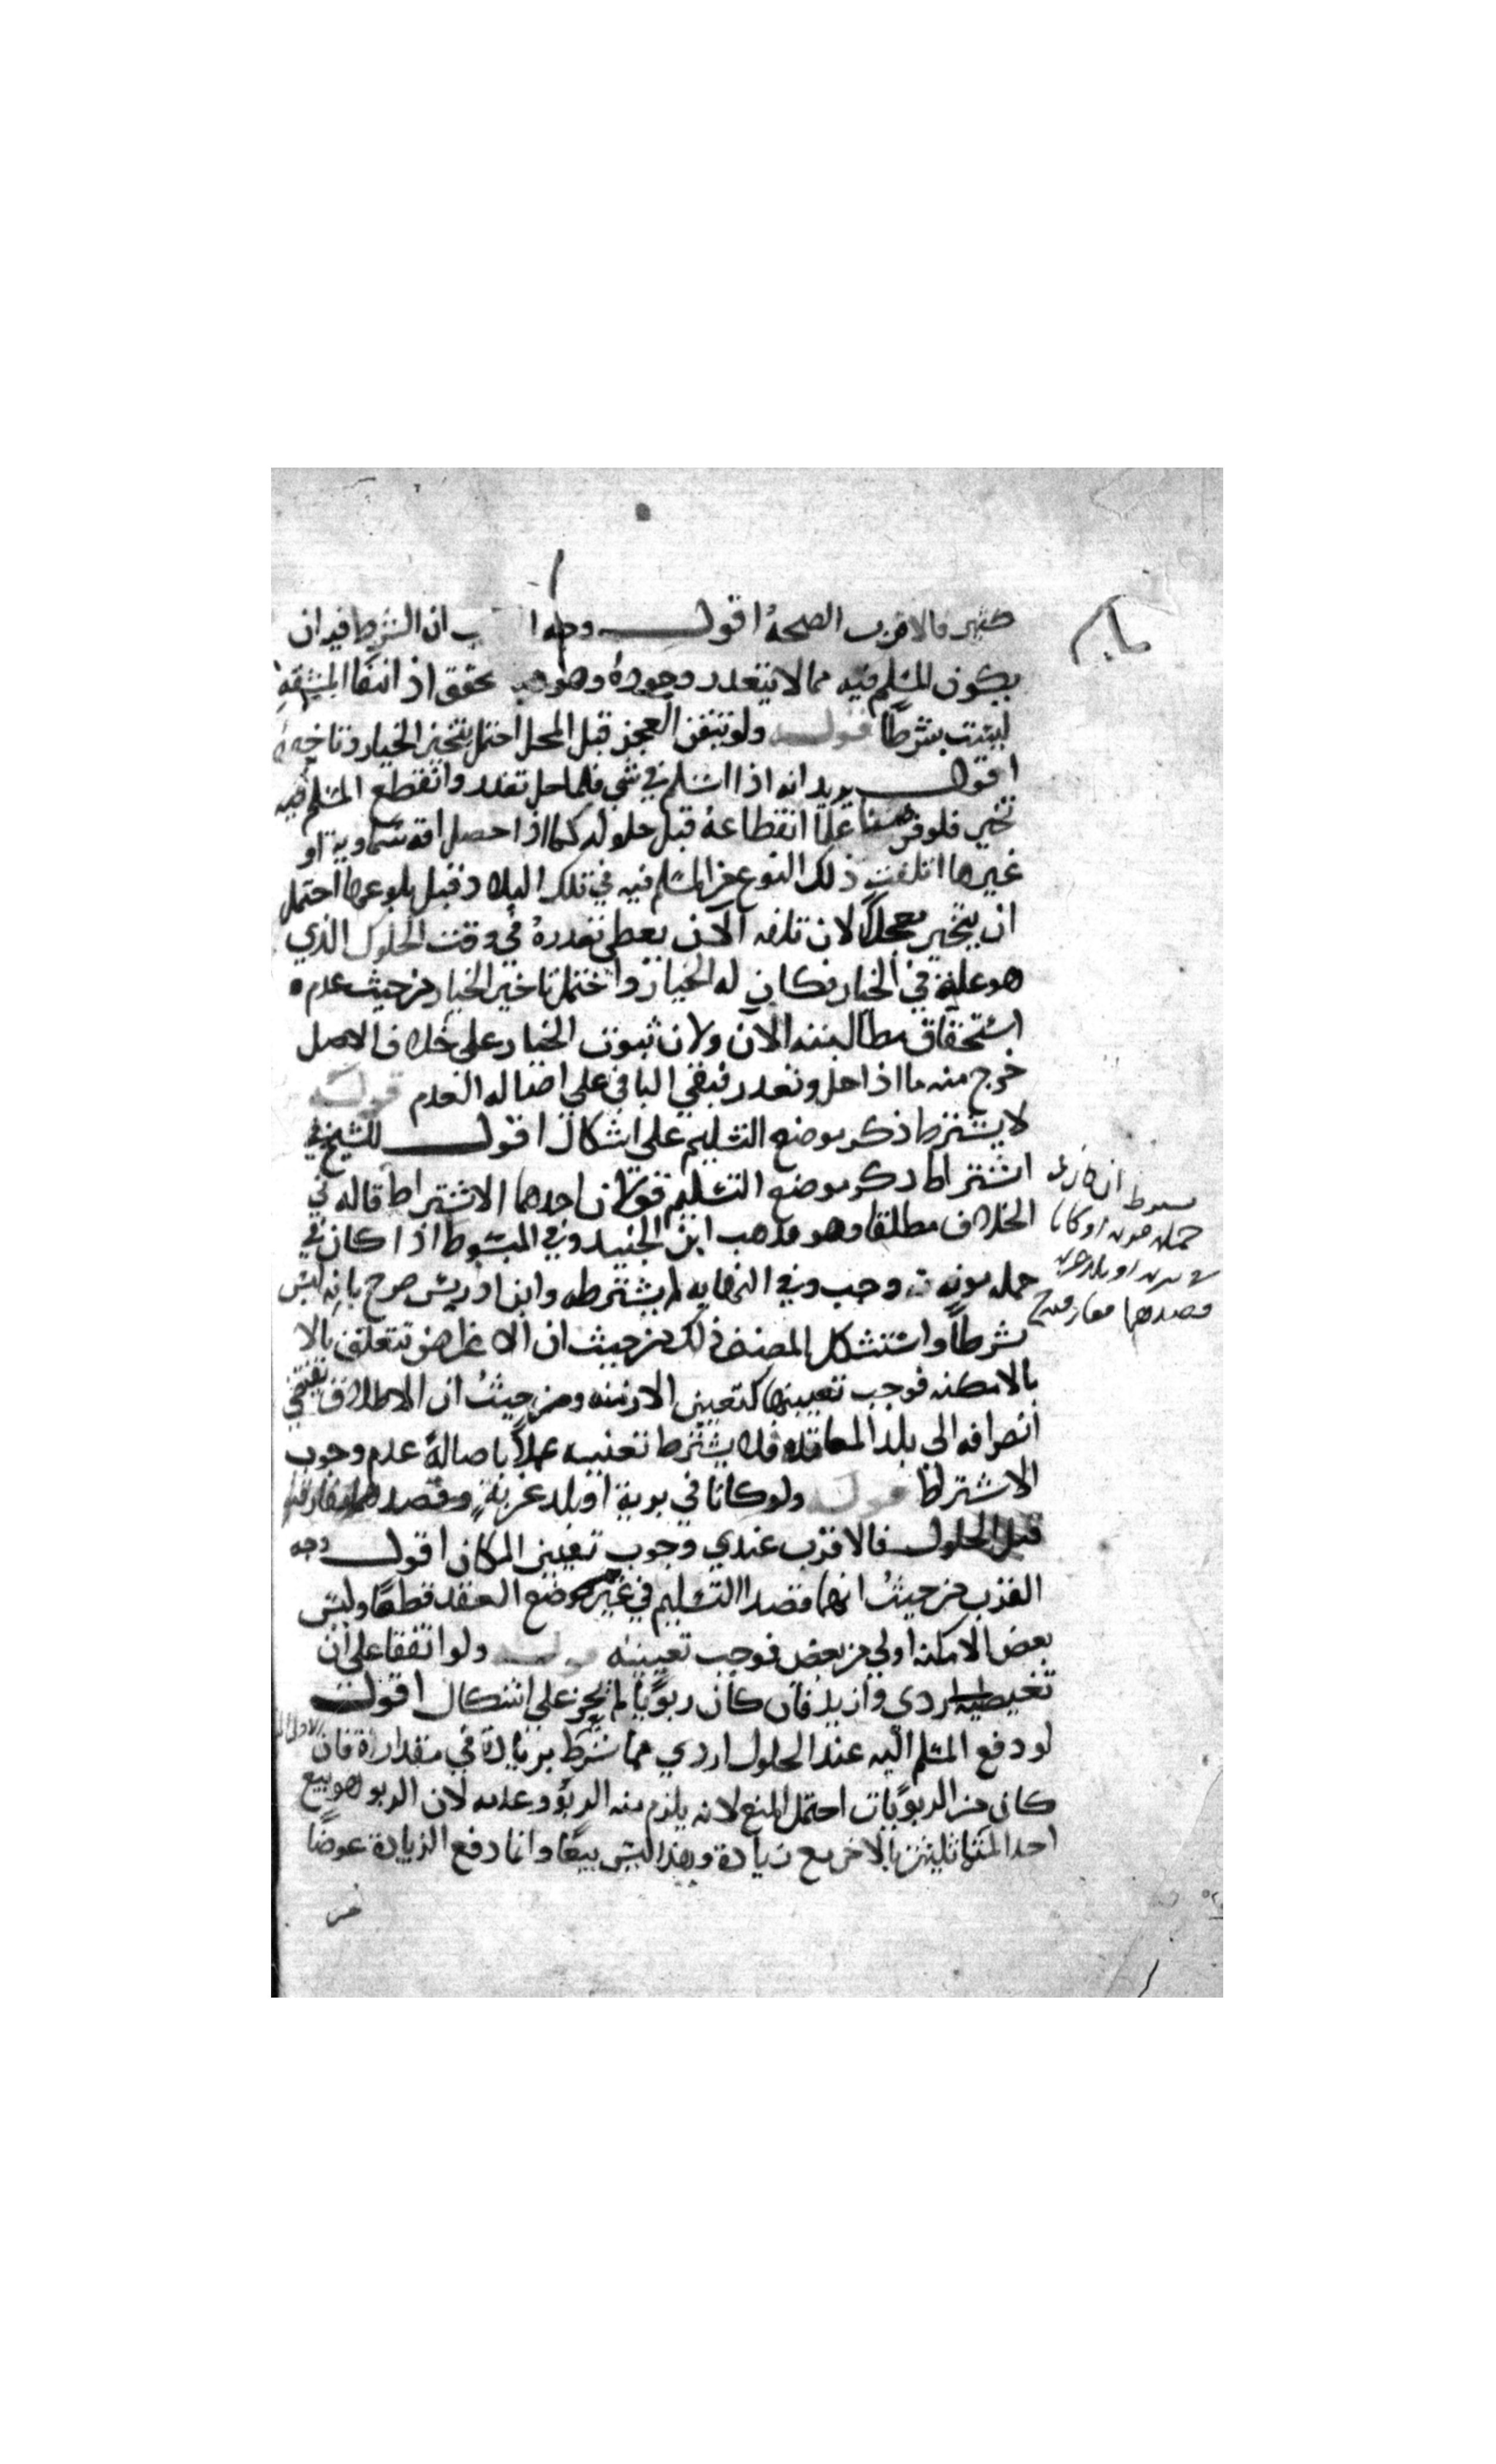 كثير فالاقرب الصحة اقول وجه ان الشرط فيه ان
يكون المسلم فيه مما لا يتعذر وجوده وهو تحقق اذ انتفا المشقة
ليست شرطا قوله ولو تيقن العجز قبل المحل احتمل تنجيز الخيار وتاخيره
اقول يريد انه اذا اسلم في شي فلما حل تعذر وانقطع المسلم فيه
تخير فلو علما انقطاعه قبل حلوله كما اذا حصل افة سماوية او
غيرها اتلفت ذلك النوع المسلم فيه في تلك البلاد قبل بلوغها احتمل
ان يتخير معجلا لان تلفه الآن يعطي تعذره في وقت الحلول الذي
هو علة في الخيار فكان له الخيار واحتمل تاخير الخيار من حيث عدم
استحقاق مطالبته الآن ولان ثبوت الخيار على خلاف الاصل
خرج منه ما اذا حل وتعذر فبقي الباقي على اصالة العدم قوله
لا يشترط ذكر موضع التسليم على اشكال اقول للشيخ في
اشتراط ذكر موضع التسليم قولان احدهما الاشتراط قاله في
الخلاف مطلقا وهو مذهب ابن الجنيد وفي المبسوط اذا كان في
حمله مونة وجب وفي النهاية لم يشترطه وابن ادريس صرح بانه ليس
شرطا واستشكل المصنف ذلك من حيث ان الاغراض تتعلق بالا
بالامكنه فوجب تعيينها كتعيين الازمنه ومن حيث ان الاطلاق يقتضي
انصرافه الى بلد المعاقده فلا يشترط تعيينه عملا باصالة عدم وجوب
الاشتراط قوله ولو كانا في برية او بلد غربة وقصدهما مفارقته
قبل الحلول فالاقرب عندي وجوب تعيين المكان اقول وجه
القرب من حيث انهما قصدا التسليم في غير موضع العقد قطعا وليس
بعض الامكنه اولى من بعض فوجب تعيينه قوله ولو اتفقا على ان
يعطيه اردى وازيد فان كان ربويا لم يجز على اشكال اقول
لو دفع المسلم اليه عند الحلول اردي مما شرط بزيادة في مقداره فان
كان من الربويات احتمل المنع لانه يلزم منه الربو وعدمه لان الربو هو بيع
احد المتماثلين بالاخر مع زيادة وهذا ليس بيعا وانما دفع الزيادة عوضا